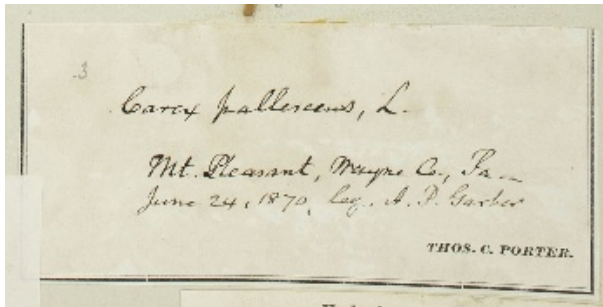 3
Carex pallescens, L.
Mt. Pleasant, Wayne Co., Pa
June 24, 1870, Leg. A. P. Garber
THOS. C. PORTER.